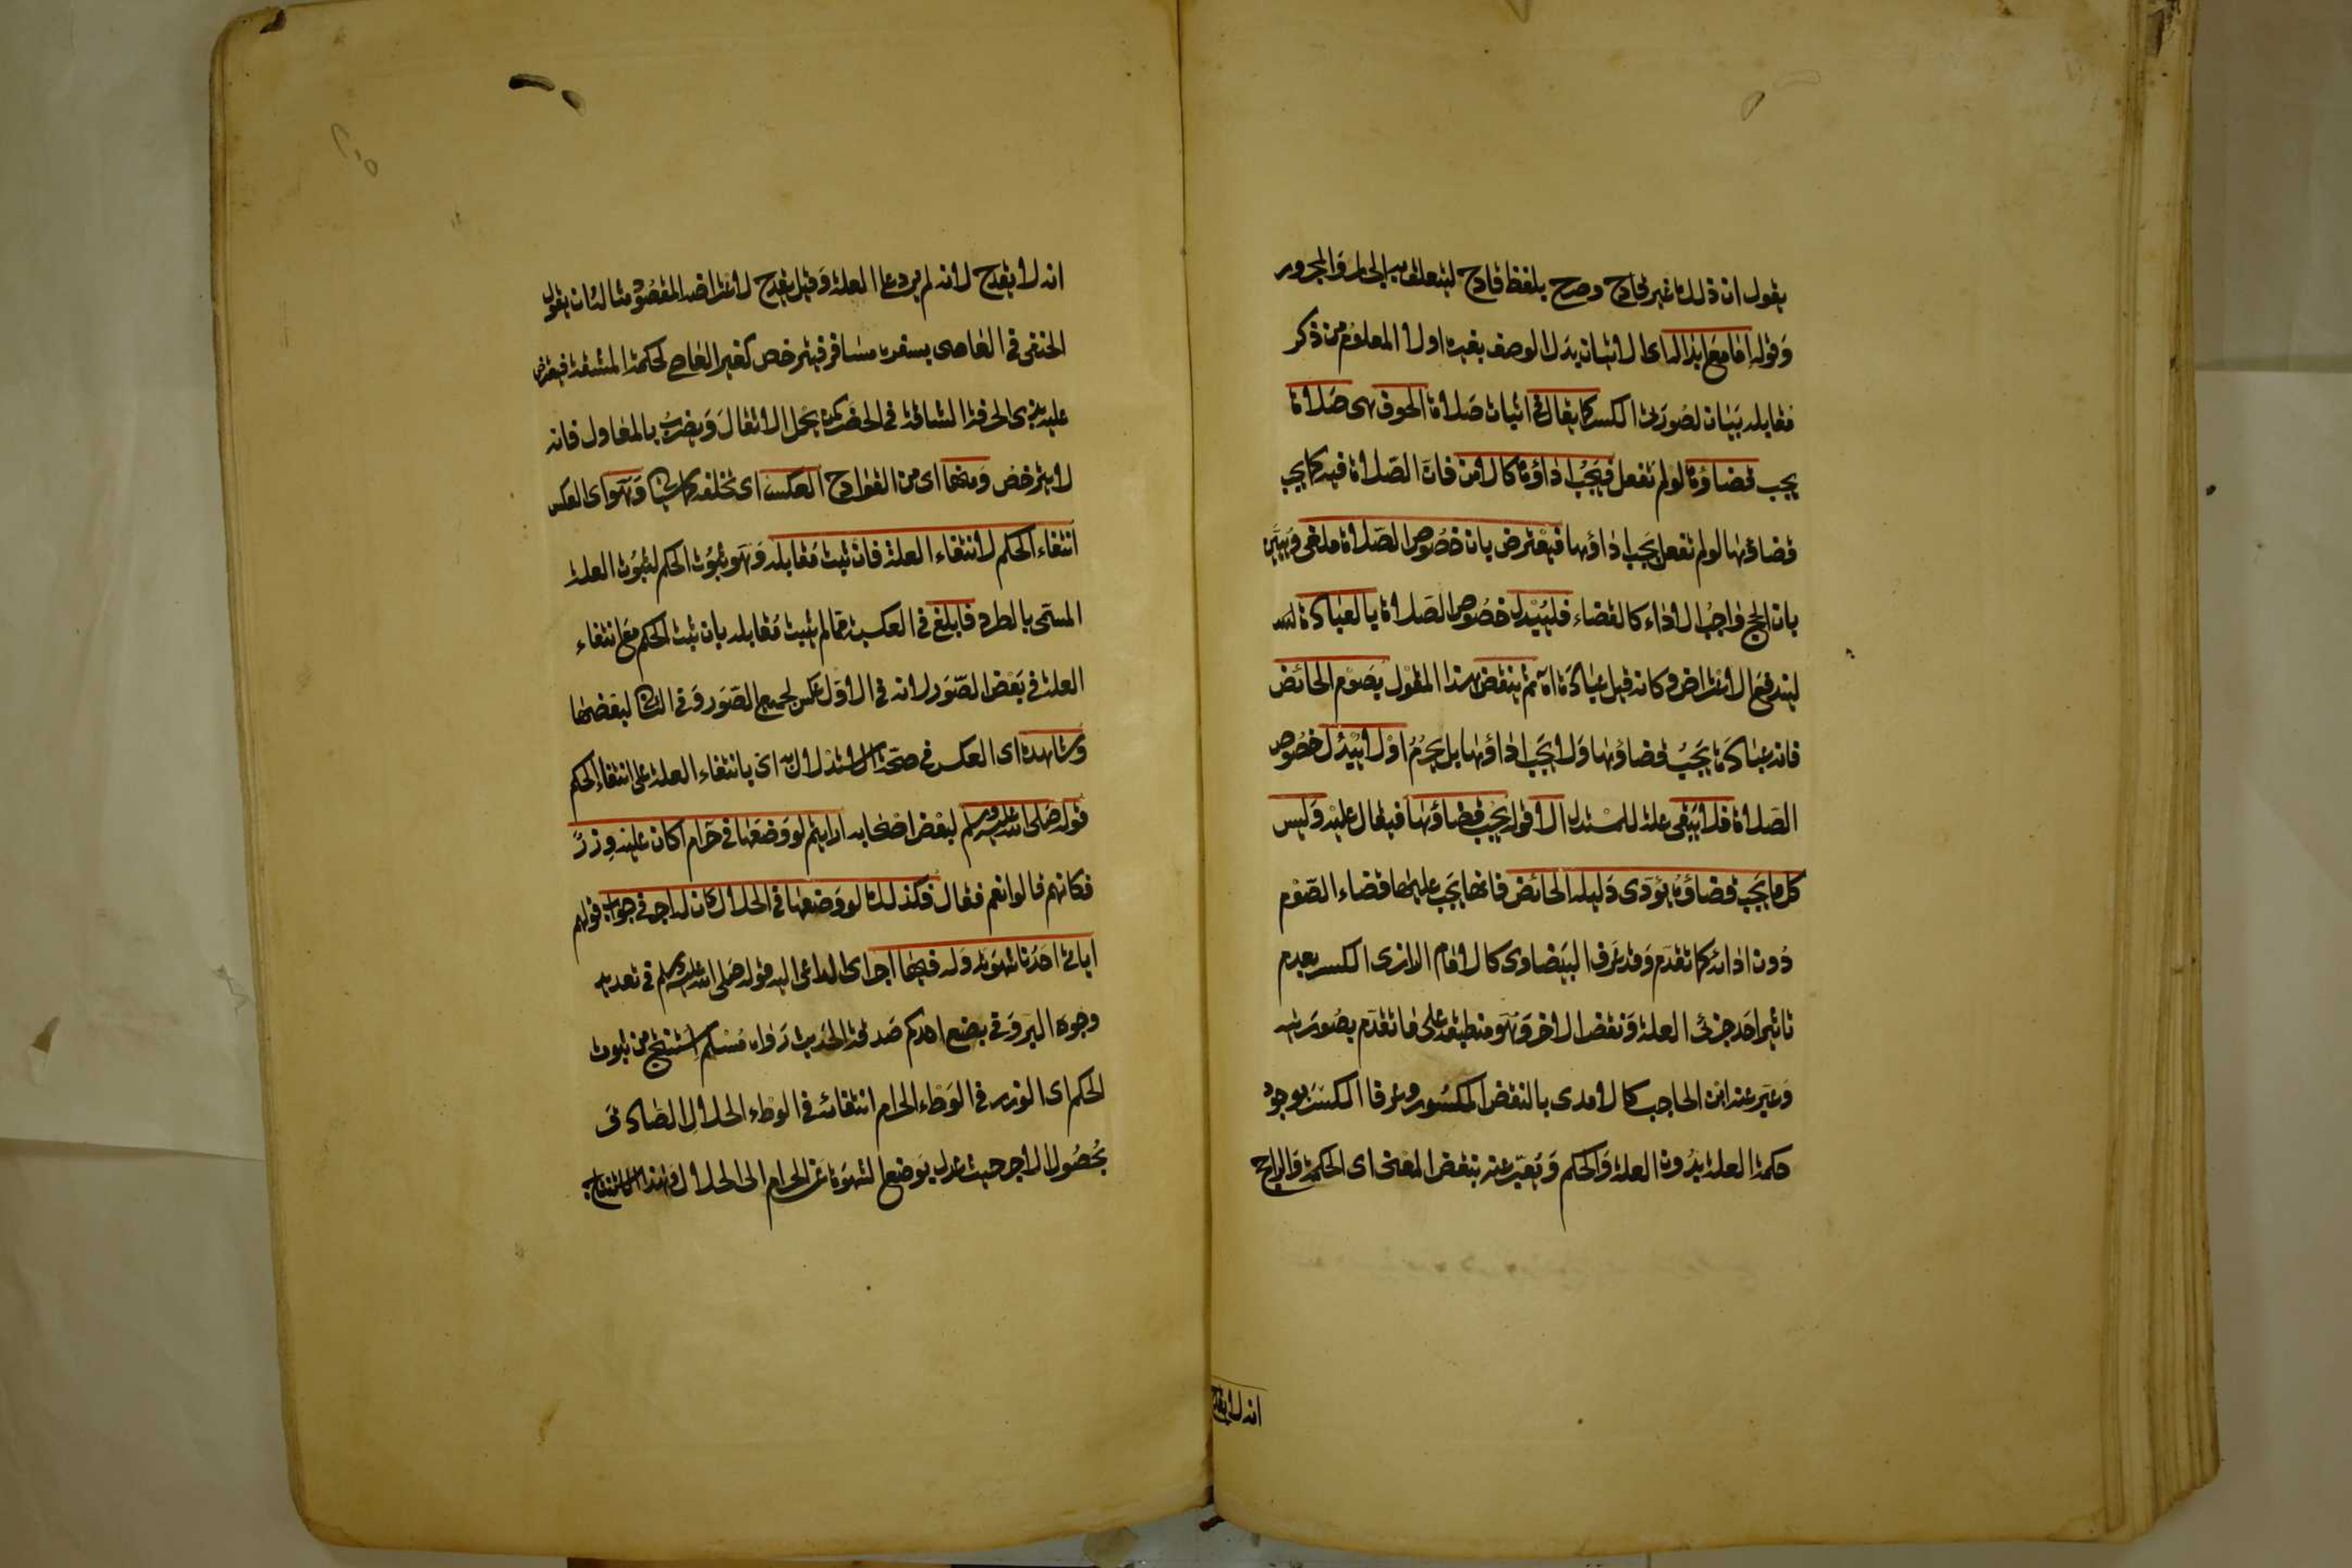 يقول ان ذلك غير قادح وصرح بلفظ قادح ليتعلق به الجار والمجرور
وقوله اما مع ابداله اى الاتيان بدل الوصف بغيره اولا المعلوم من ذكر
مقابله بيان لصورتى الكسر كما يقال فى اثبات صلاة الخوف هى صلاة
يجب قضاؤها لو لم تفعل فيجب اداؤها كالامن فان الصلاة فيه كما يجب
قضاؤها لو لم تفعل يجب اداؤها فيعترض بان خصوص الصلاة ملغى ويبين
بان الحج واجب الاداء كالقضاء فليبدل خصوص الصلاة بالعبادة
ليندفع الاعتراض وكانه قيل عبادة اه ثم ينقض هذا المقول بصوم الحائض
فانه عبادة يجب قضاؤها ولا يجب اداؤها بل يحرم اولا يبدل خصوص
الصلاة فلا يبقى علة للمستدل الا قوله يجب قضاؤها فيقال عليه وليس
كل ما يجب قضاؤه يؤدى دليله الحائض فانها يجب عليها قضاء الصوم
دون ادائه كما تقدم وقد عرف البيضاوى كالامام الرازى الكسر بعدم
تاثير احد جزئى العلة ونقض الاخر وهو منطبق على ما تقدم بصورتيه
وعبر عنه ابن الحاجب كالامدى بالنقض المكسور وعرفا الكسر بوجود
حكمة العلة بدون العلة والحكم ويعبر عنه بنقض المعنى اى الحكمة والراجح
انه لا يقدح
انه لا يقدح لانه لم يرد على العلة وقيل يقدح لاعتراضه المقصود مثاله ان يقول
الحنفى فى العاصى بسفره مسافر فيترخص كغير العاصى لحكمة المشقة فيعترض
عليه بذى الحرفة الشاقة فى الحضر كمن يحمل الاثقال ويضرب بالمعاول فانه
لا يترخص ومنها اى من القوادح العكس اى تخلفه كما سياتى وهو اى العكس
انتفاء الحكم لانتفاء العلة فان ثبت مقابله وهو ثبوت الحكم لثبوت العلة
المسمى بالطرد فابلغ فى العكسية مما لم يثبت مقابله بان ثبت الحكم مع انتفاء
العلة فى بعض الصور لانه فى الاول عكس لجميع الصور وفى الثانى لبعضها
وشاهده اى العكس فى صحة الاستدلال به اى بانتفاء العلة على انتفاء الحكم
قوله صلى الله عليه وسلم لبعض اصحابه ارايتم لو وضعها فى حرام اكان عليه وزر
فكانهم قالوا نعم فقال فكذلك لو وضعها فى الحلال كان له اجر فى جواب قولهم
اياتى احدنا شهوته وله فيها اجر اى الداعى اليه قوله صلى الله عليه وسلم فى تعديد
وجوه البر وفى بضع احدكم صدقة الحديث رواه مسلم استنتج من ثبوت
الحكم اى الوزر فى الوطء الحرام انتفائه فى الوطء الحلال الصادق
بحصول الاجر حيث عدل بوضع الشهوة عن الحرام الى الحلال وهذا الاستنتاج